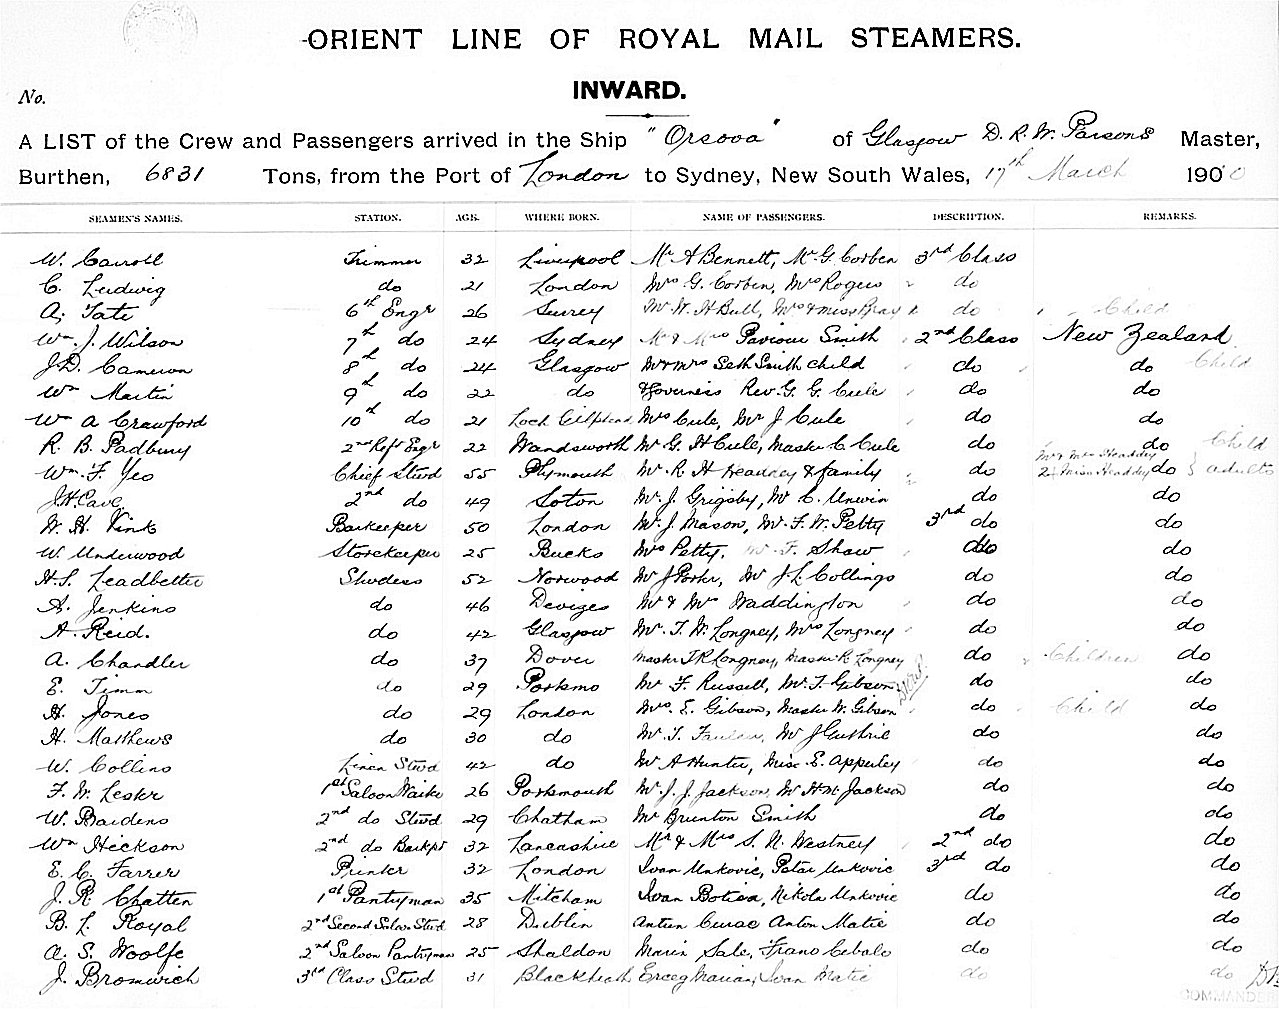 ORIENT LINE OF ROYAL MAIL STEAMERS.
INWARD.
No.
A LIST of the Crew and Passengers arrived in the Ship "Orsova" of Glasgow D. R. W. Parsons Master,
Burthen, 6831 Tons, from the Port of London to Sydney, New South Wales, 17th March 190
SEAMEN'S NAMES. STATION. AGE. WHERE BORN. NAME OF PASSENGERS. DESCRIPTION. REMARKS.
W. Carroll Trimmer 32 Liverpool Mr A Bennett, Mr G. Corben 3rd Class
C. Ludwig do 21 London Mrs G. Corben, Mrs Rogers do
A. Tate 6th Engr 26 Surrey Mr W. H Bull, Mrs & Miss Bray do Child
Wm. J. Wilson 7th do 24 Sydney Mr & Mrs Paviour Smith 2nd Class New Zealand
J.D. Cameron 8th do 24 Glasgow Mr & Mrs Seth Smith child do do Child
Wm Martin 9th do 22 do Governess Rev. G. G. Cule do do
Wm A Crawford 10th do 21 Loch Gilphead Mrs Cule, Mr J Cule do do
R. B. Padbury 2nd Refr Engr 22 Wandsworth Mr G. H Cule, Master C Cule do do Child
Wm. F. Yeo Chief Stwd 55 Plymouth Mr. R H Headrey & family do Mr & Mrs Headdey 2 Miss Headdey do adults
J.H Cave 2nd do 49 Soton Mr. J. Grigsby, Mr C. Unwin do do
W. H. Vink Barkeeper 50 London Mr. J. Mason, Mr. F. W. Petty 3rd do do
W. Underwood Storekeeper 25 Bucks Mrs Petty, Mr F. Shaw do do
H.S. Leadbetter Stwdess 52 Norwood Mr J Porter, Mr J. L Collings do do
A. Jenkins do 46 Devizes Mr & Mrs Waddington do do
A. Reid. do 42 Glasgow Mr. T. W. Longney, Mrs Longney do do
A. Chandler do 37 Dover Master T R Longney, Master R Longney do Children do
E. Timm do 29 Portsmo Mr F. Russell, Mr. T. Gibson do do
H. Jones do 29 London Mrs. E. Gibson, Master W. Gibson do Child do
H. Matthews do 30 do Mr. T. Mr J Guthrie do do
W. Collins Linen Stwd 42 do Mr A Hunter, Miss E. Apperley do do
F. W. Lester 1st Saloon Waiter 26 Portsmouth Mr. J. J. Jackson, Mr H M Jackson do do
W. Baidens 2nd do Stwd 29 Chatham Mr Brunton Smith do do
Wm Hickson 2nd do Barkpr 32 Lancashire Mr & Mrs S. N. Westney 2nd do do
E. C. Farrer Printer 32 London Ivan Unkovic, Petar Unkovic 3rd do do
J. R Chatten 1st Pantryman 35 Mitcham Ivan Botica, Nikola Unkovic do do
B. L. Royal 2nd Second Saloon Stwd 28 Dublin Antun Curac Anton Matic do do
A. S. Woolfe 2nd Saloon Pantryman 25 Shaldon Marin Sale, Frano Cebalo do do
J. Bromwich 3rd Class Stwd 31 Blackheath Erceg Marian, Ivan Matic do do
COMMANDER